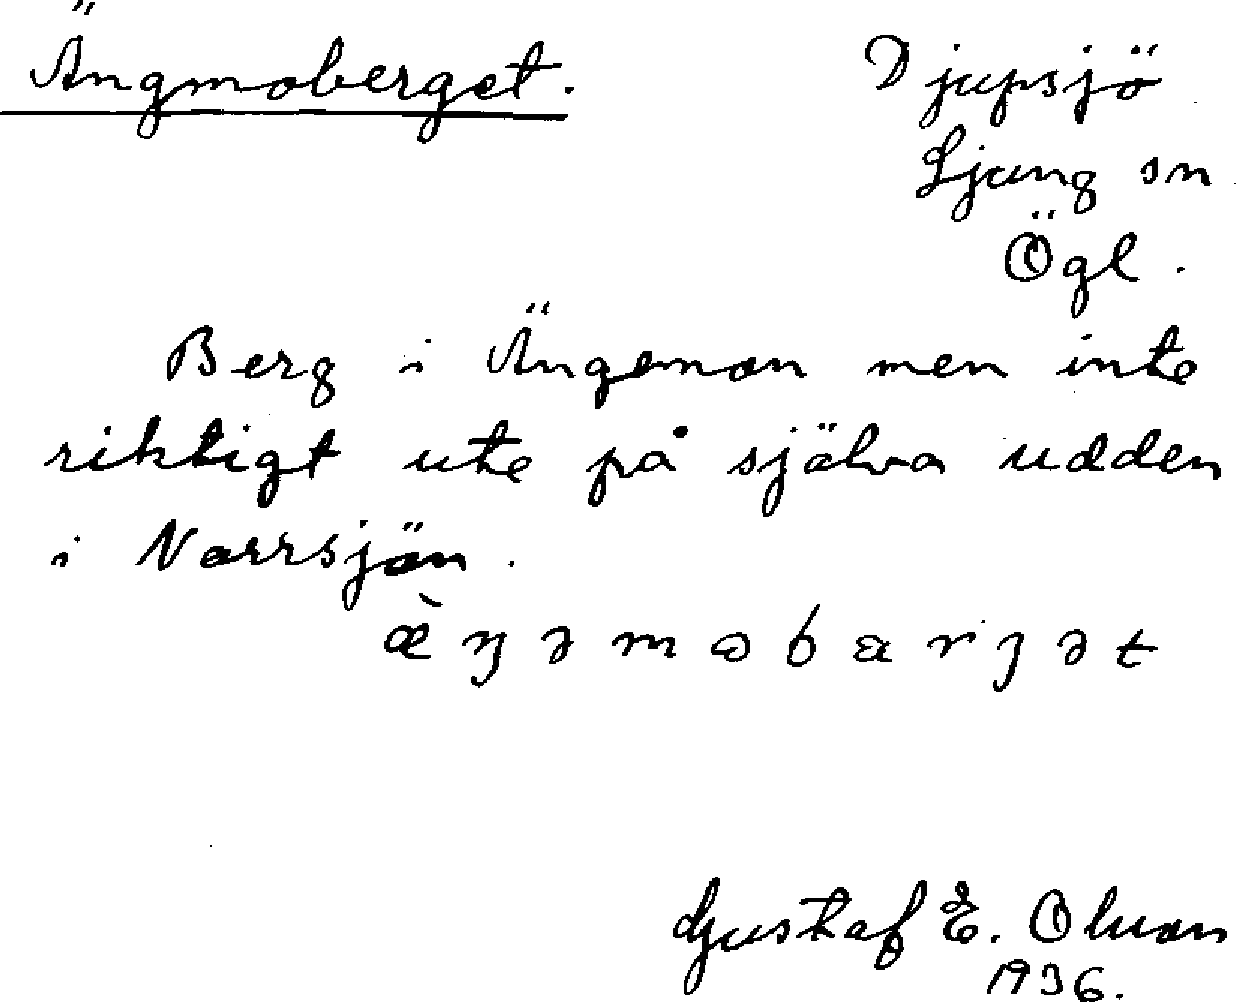 Ängmoberget.
Djupsjö
Ljung sn
Ögl.
Berg i Ängemon men inte
riktigt ute på själva udden
i Norrsjön.
æ̀ŋəmobarjət
Gustaf E. Olson
1936.